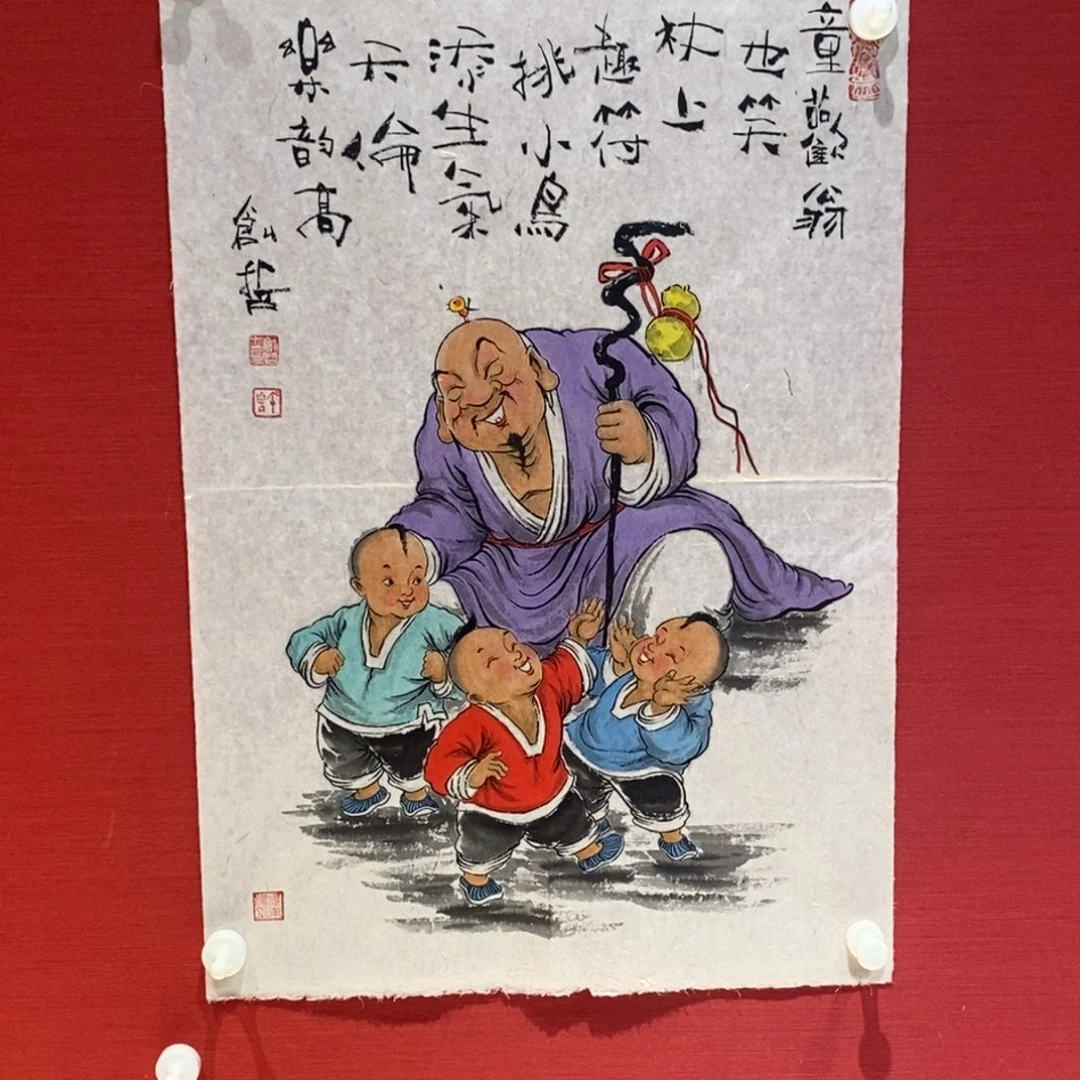 童歡翁
也笑
杖上
趣符
挑小鳥
添生氣
天倫
樂韵高
創哲